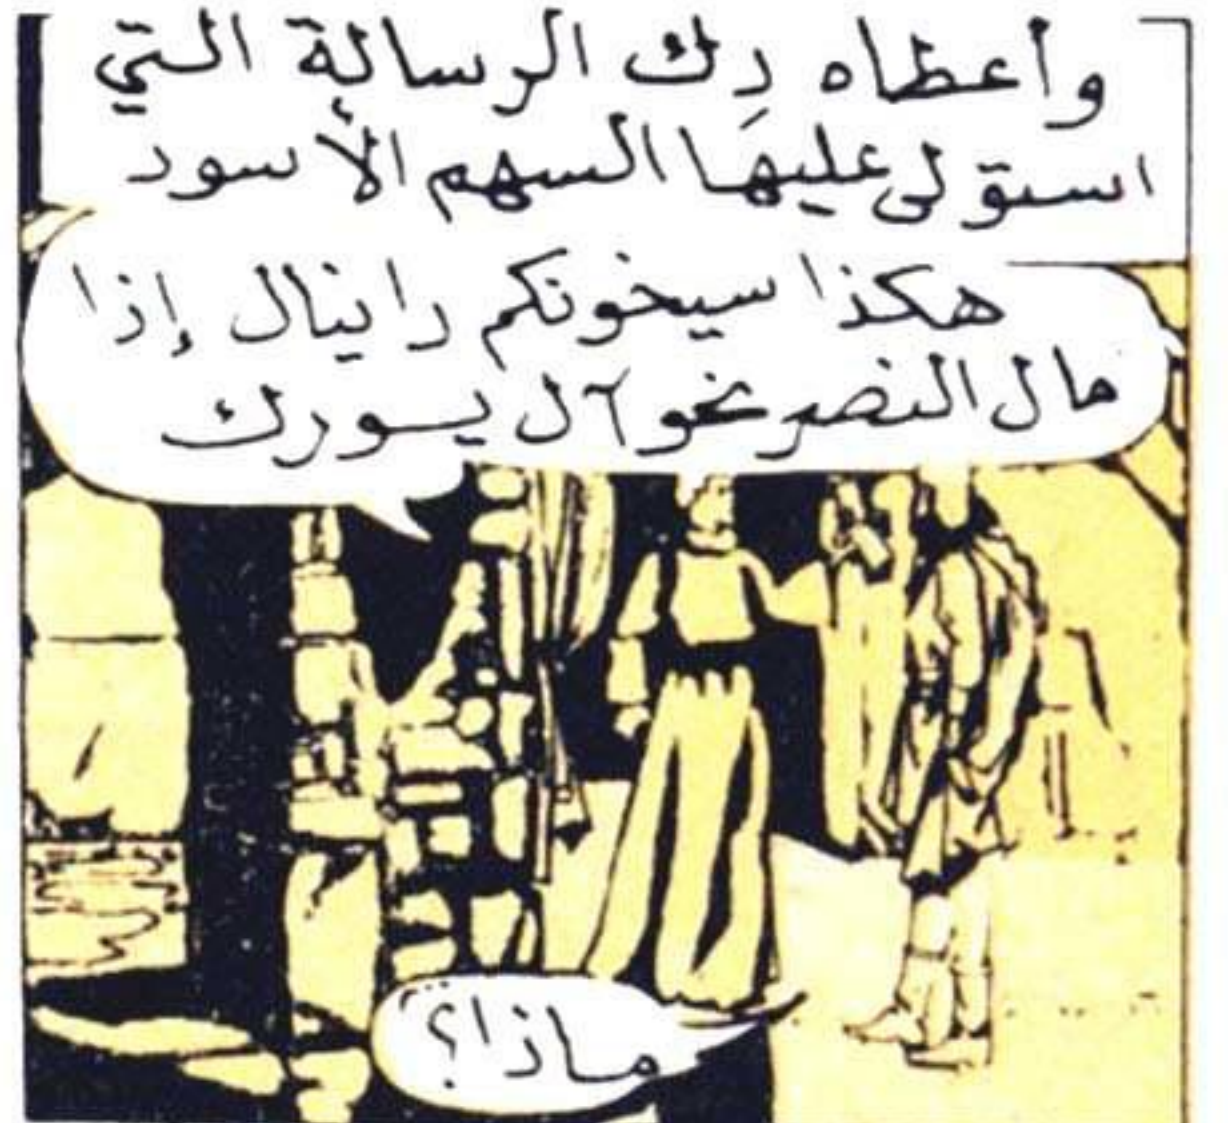 وأعطاه دِك الرسالة التي
استولى عليها السهم الأسود
هكذا سيخونكم راينال إذا
مال النصر نحو آل يورك
ماذا؟